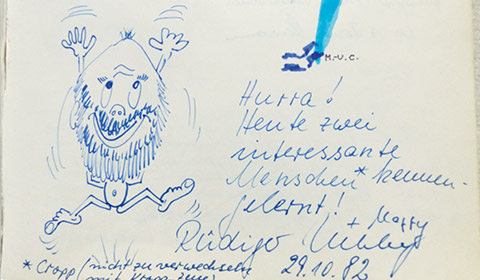 M.-V.C.
Hurra!
Heute zwei
interessante
Menschen* kennen-
gelernt!
+
Rüdiger
29.10.82
* Cropp (nicht zu verwechseln
mit